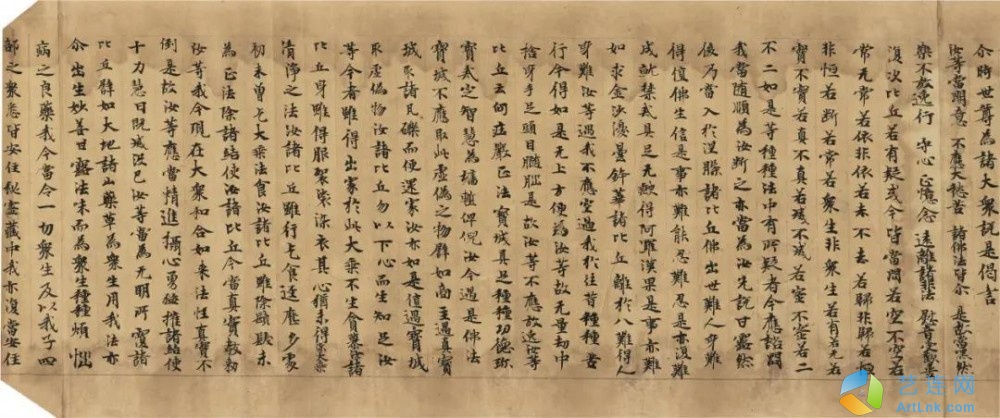 尒時世尊為諸大衆說是偈言
汝等當開意 不應大愁苦 諸佛法皆尒 是故當默然
樂不放逸行 守心正憶念 遠離諸非法 慰意受歡樂
復次比丘若有疑或今皆當問若空不空若
常无常若依非依若去不去若歸非歸若恒
非恒若斷若常若衆生非衆生若有若无若
實不實若真不真若滅不滅若蜜不蜜若二
不二如是等種種法中有所疑者今應諮問
我當随順為汝斷之亦當為汝先說甘露然
後乃當入於涅槃諸比丘佛出世難人身難
得值佛生信是事亦難能忍難忍是亦復難
成就禁戒具足无缺得阿羅漢果是事亦難
如求金沙優曇鉢華諸比丘離於八難得人
身難汝等遇我不應空過我於往昔種種苦
行今得如是无上方便為汝等故无量劫中
捨身手足頭目髓腦是故汝等不應放逸汝等
比丘云何莊嚴正法寶城具足種種功德珎
寶戒定智慧為墻塹埤堄汝今遇是佛法
寶城不應取此虛偽之物譬如商主遇真寶
城取諸瓦礫而便還家汝亦如是值遇寶城
取虛偽物汝諸比丘勿以下心而生知足汝
等今者雖得出家於此大乘不生貪慕汝諸
比丘身雖得服袈裟染衣其心猶未得染大乘
清淨之法汝諸比丘雖行乞食逕歷多處
初未曾乞大乘法食汝諸比丘雖除鬚髮未
為正法除諸結使汝諸比丘今當真實教勑
汝等我今現在大衆和合如来法性真實不
倒是故汝等應當精進攝心勇猛摧諸結使
十力慧日既滅沒已汝等當為无明所覆諸
比丘譬如大地諸山藥草為衆生用我法亦
尒出生妙善甘露法味而為衆生種種煩惱
病之良藥我今當令一切衆生及以我子四
部之衆悉皆安住秘蜜藏中我亦復當安住
艺连网
ArtLnk.com